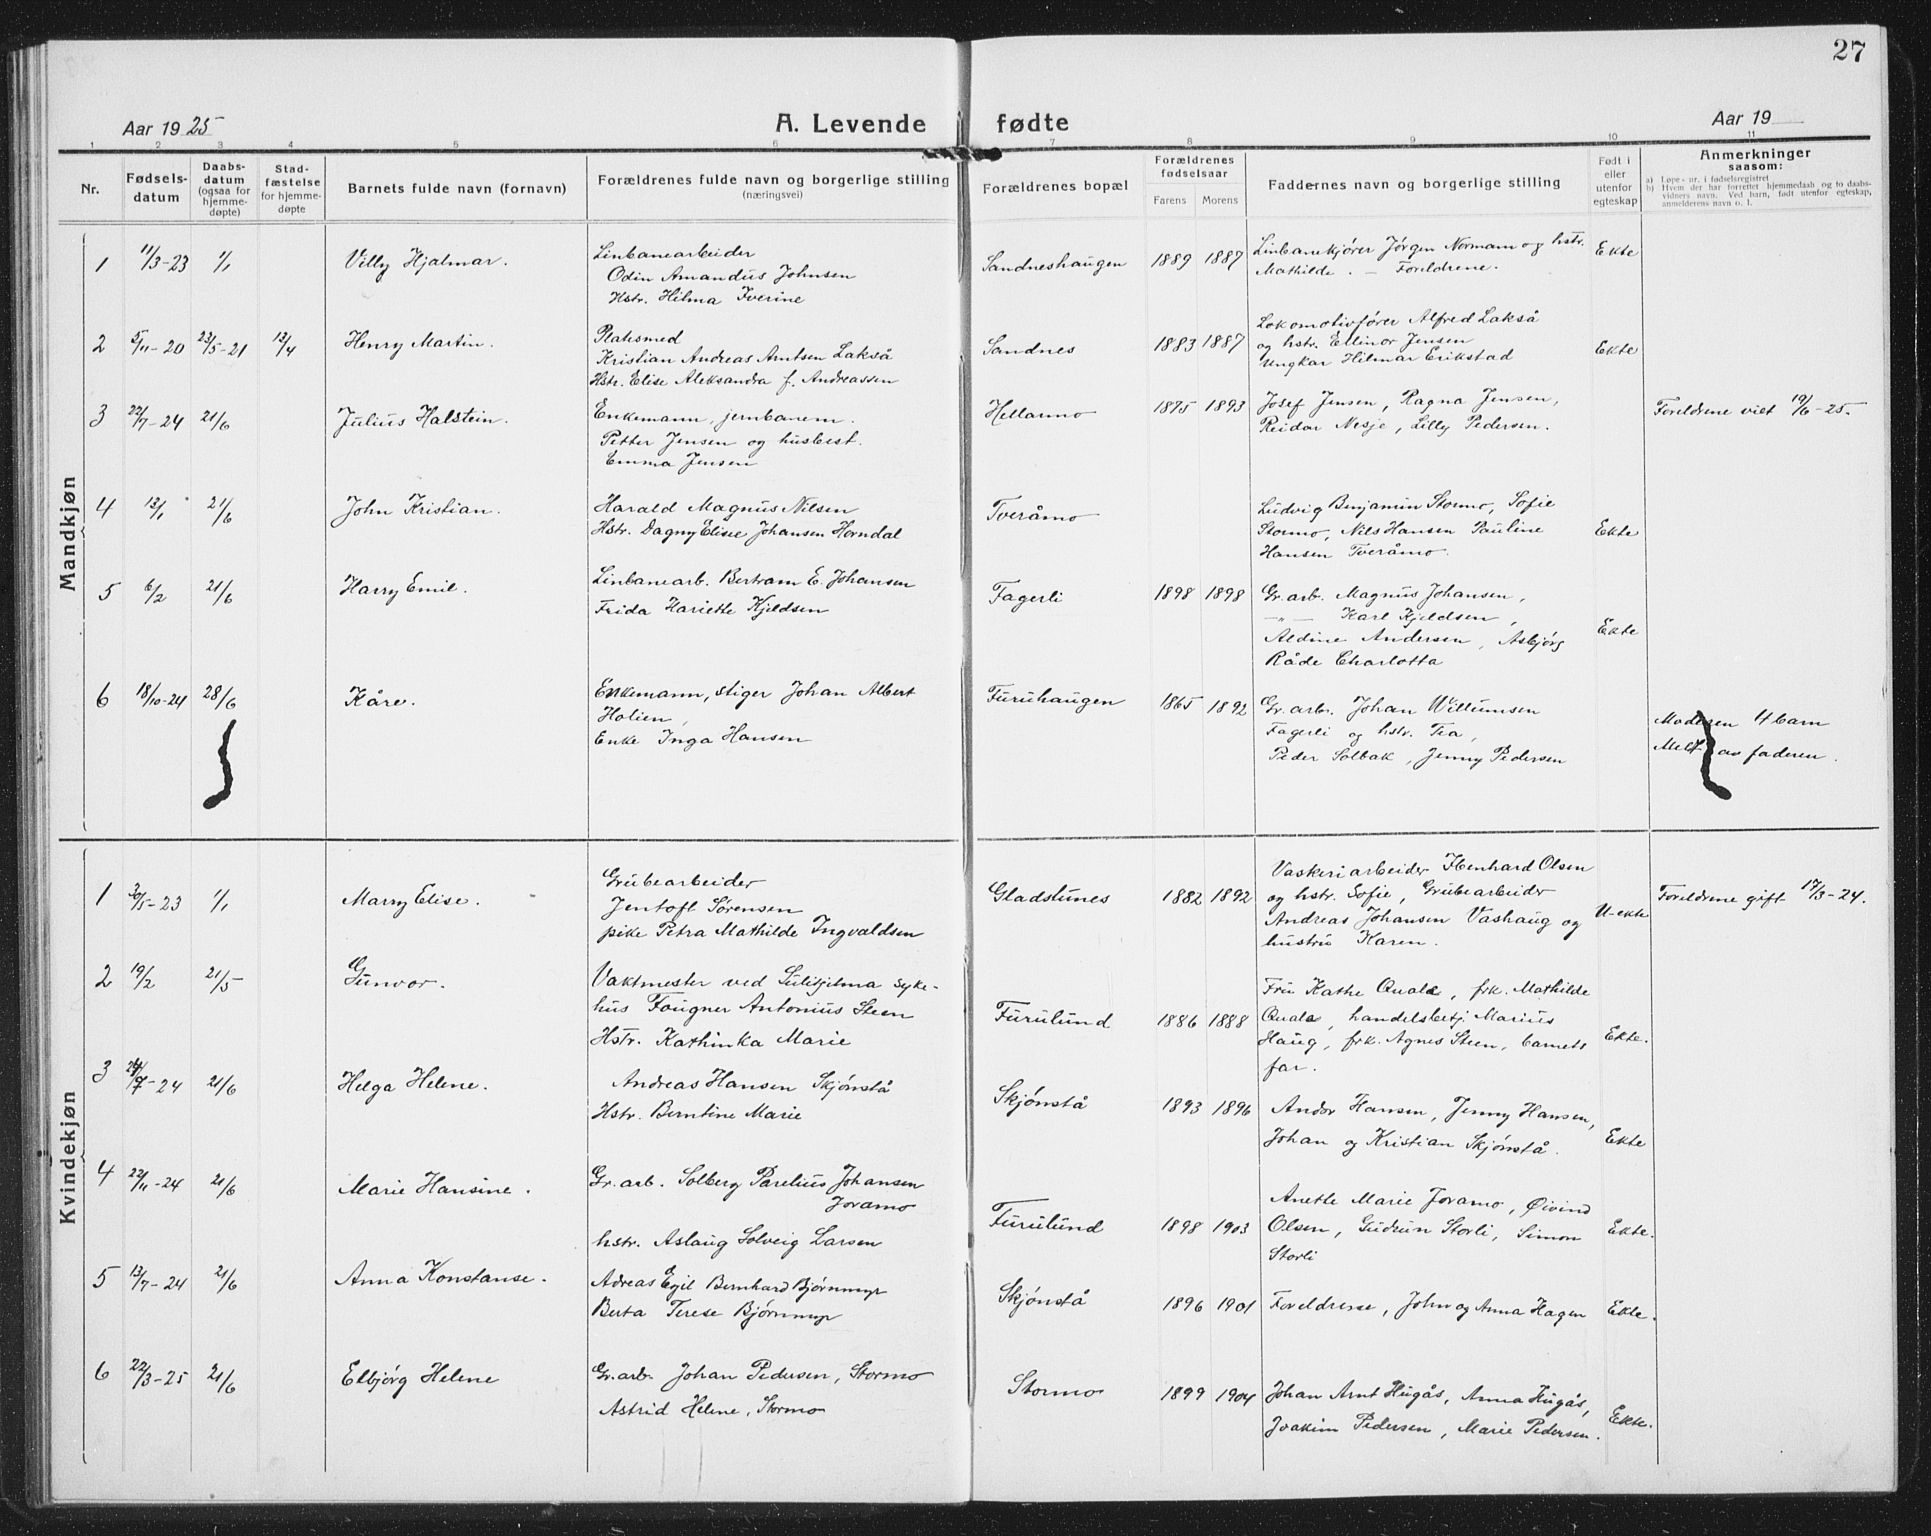 27
Aar 1925
A. Levende fødte
Aar 19
1 2 3 4 5 6 7 8 9 10 11
Nr.
Fødsels-
datum
Daabs-
datum
(ogsaa for
hjemme-
døpte)
Stad-
fæstelse
for hjemme-
døpte
Barnets fulde navn (fornavn)
Forældrenes fulde navn og borgerlige stilling
(næringsvei)
Forældrenes bopæl
Forældrenes
fødselsaar
Farens Morens
Faddernes navn og borgerlige stilling
Født i
eller
utenfor
egteskap
Anmerkninger
saasom:
a) Løpe-nr. i fødselsregistret
b) Hvem der har forrettet hjemmedaab og to daabs-
vidners navn. Ved barn, født utenfor egteskap,
anmelderens navn o. l.
Mandkjøn
1 11/3-23 1/1 Villy Hjalmar.
Linbanearbeider
Odin Amandus Johnsen
Hstr. Hilma Iverine
Sandneshaugen 1889 1887
Linbanekjører Jørgen Normann og hstr.
Mathilde. — Foreldrene.
Ekte
2 5/11-20 23/5-21 12/4 Henry Martin.
Platsmed
Kristian Andreas Arntsen Lakså
Hstr. Elise Aleksandra f. Andreassen
Sandnes 1883 1887
Lokomotivfører Alfred Lakså
og hstr. Ellinor Jensen
Ungkar Hilmar Erikstad
Ekte
3 22/7-24 21/6 Julius Halstein.
Enkemann, jernbanem.
Petter Jensen og husbest.
Emma Jensen
Hellarmo 1875 1893
Josef Jensen, Ragna Jensen,
Reidar Nesje, Lilly Pedersen.
Foreldrene viet 19/6-25.
4 12/1 21/6 John Kristian.
Harald Magnus Nilsen
Hstr. Dagny Elise Johansen Horndal
Tveråmo
Ludvig Benjamin Stormo, Sofie
Stormo, Nils Hansen Pauline
Hansen Tveråmo.
Ekte
5 6/2 21/6 Harry Emil.
Linbanearb. Bertram E. Johansen
Frida Hariette Kjeldsen
Fagerli 1898 1898
Gr. arb. Magnus Johansen,
—„— Karl Kjeldsen,
Aldine Andersen, Asbjørg
Råde Charlotta
Ekte
6 18/10-24 28/6 Kåre.
Enkemann, stiger Johan Albert
Holien,
Enke Inga Hansen
Furuhaugen 1865 1892
Gr. arb. Johan Willumsen
Fagerli og hstr. Tea,
Peder Solbak, Jenny Pedersen
Moderen 4 barn
Meldt av faderen.
Kvindekjøn
1 30/5-23 1/1 Marry Elise.
Grubearbeider
Jentoft Sørensen
pike Petra Mathilde Ingvaldsen
Gladstunes 1882 1892
Vaskeriarbeider Ibenhard Olsen
og hstr. Sofie, Grubearbeider
Andreas Johansen Vashaug og
hustru Karen.
U-ekte
Foreldrene gift 17/3-24.
2 19/2 21/5 Gunvor.
Vaktmester ved Sulitjelma syke-
hus Fougner Antonius Steen
Hstr. Kathinka Marie
Furulund 1886 1888
Fru Kathe Quale, frk. Mathilde
Quale, handelsbetj. Marius
Haug, frk. Agnes Steen, barnets
far.
Ekte.
3 24/7-24 21/6 Helga Helene.
Andreas Hansen Skjønstå
Hstr. Berntine Marie
Skjønstå 1893 1896
Andor Hansen, Jenny Hansen,
Johan og Kristian Skjønstå.
Ekte
4 22/11-24 21/6 Marie Hansine.
Gr. arb. Solberg Parelius Johansen
Joramo
hstr. Aslaug Solveig Larsen
Furulund 1898 1903
Anette Marie Joramo, Øivind
Olsen, Gudrun Storli, Simon
Storli
Ekte.
5 13/7-24 21/6 Anna Konstanse.
Adreas Egil Bernhard Bjørnmyr
Berta Terese Bjørnmyr
Skjønstå 1896 1901
Foreldrene, John og Anna Hagen
Ekte.
6 22/3-25 21/6 Elbjørg Helene
Gr. arb. Johan Pedersen, Stormo
Astrid Helene, Stormo
Stormo 1899 1904
Johan Arnt Hugås, Anna Hugås,
Joakim Pedersen, Marie Pedersen.
Ekte.